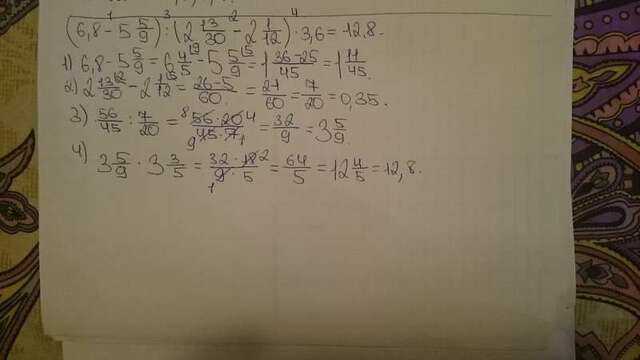 (6,8 - 5 5/9) : (2 13/30 - 2 1/12) · 3,6 = 12,8.
1) 6,8 - 5 5/9 = 6 4/5 - 5 5/9 = 1 36-25/45 = 1 11/45.
2) 2 13/30 - 2 1/12 = 26-5/60 = 21/60 = 7/20 = 0,35.
3) 56/45 : 7/20 = 56·20/45·7 = 32/9 = 3 5/9.
4) 3 5/9 · 3 3/5 = 32·18/9·5 = 64/5 = 12 4/5 = 12,8.